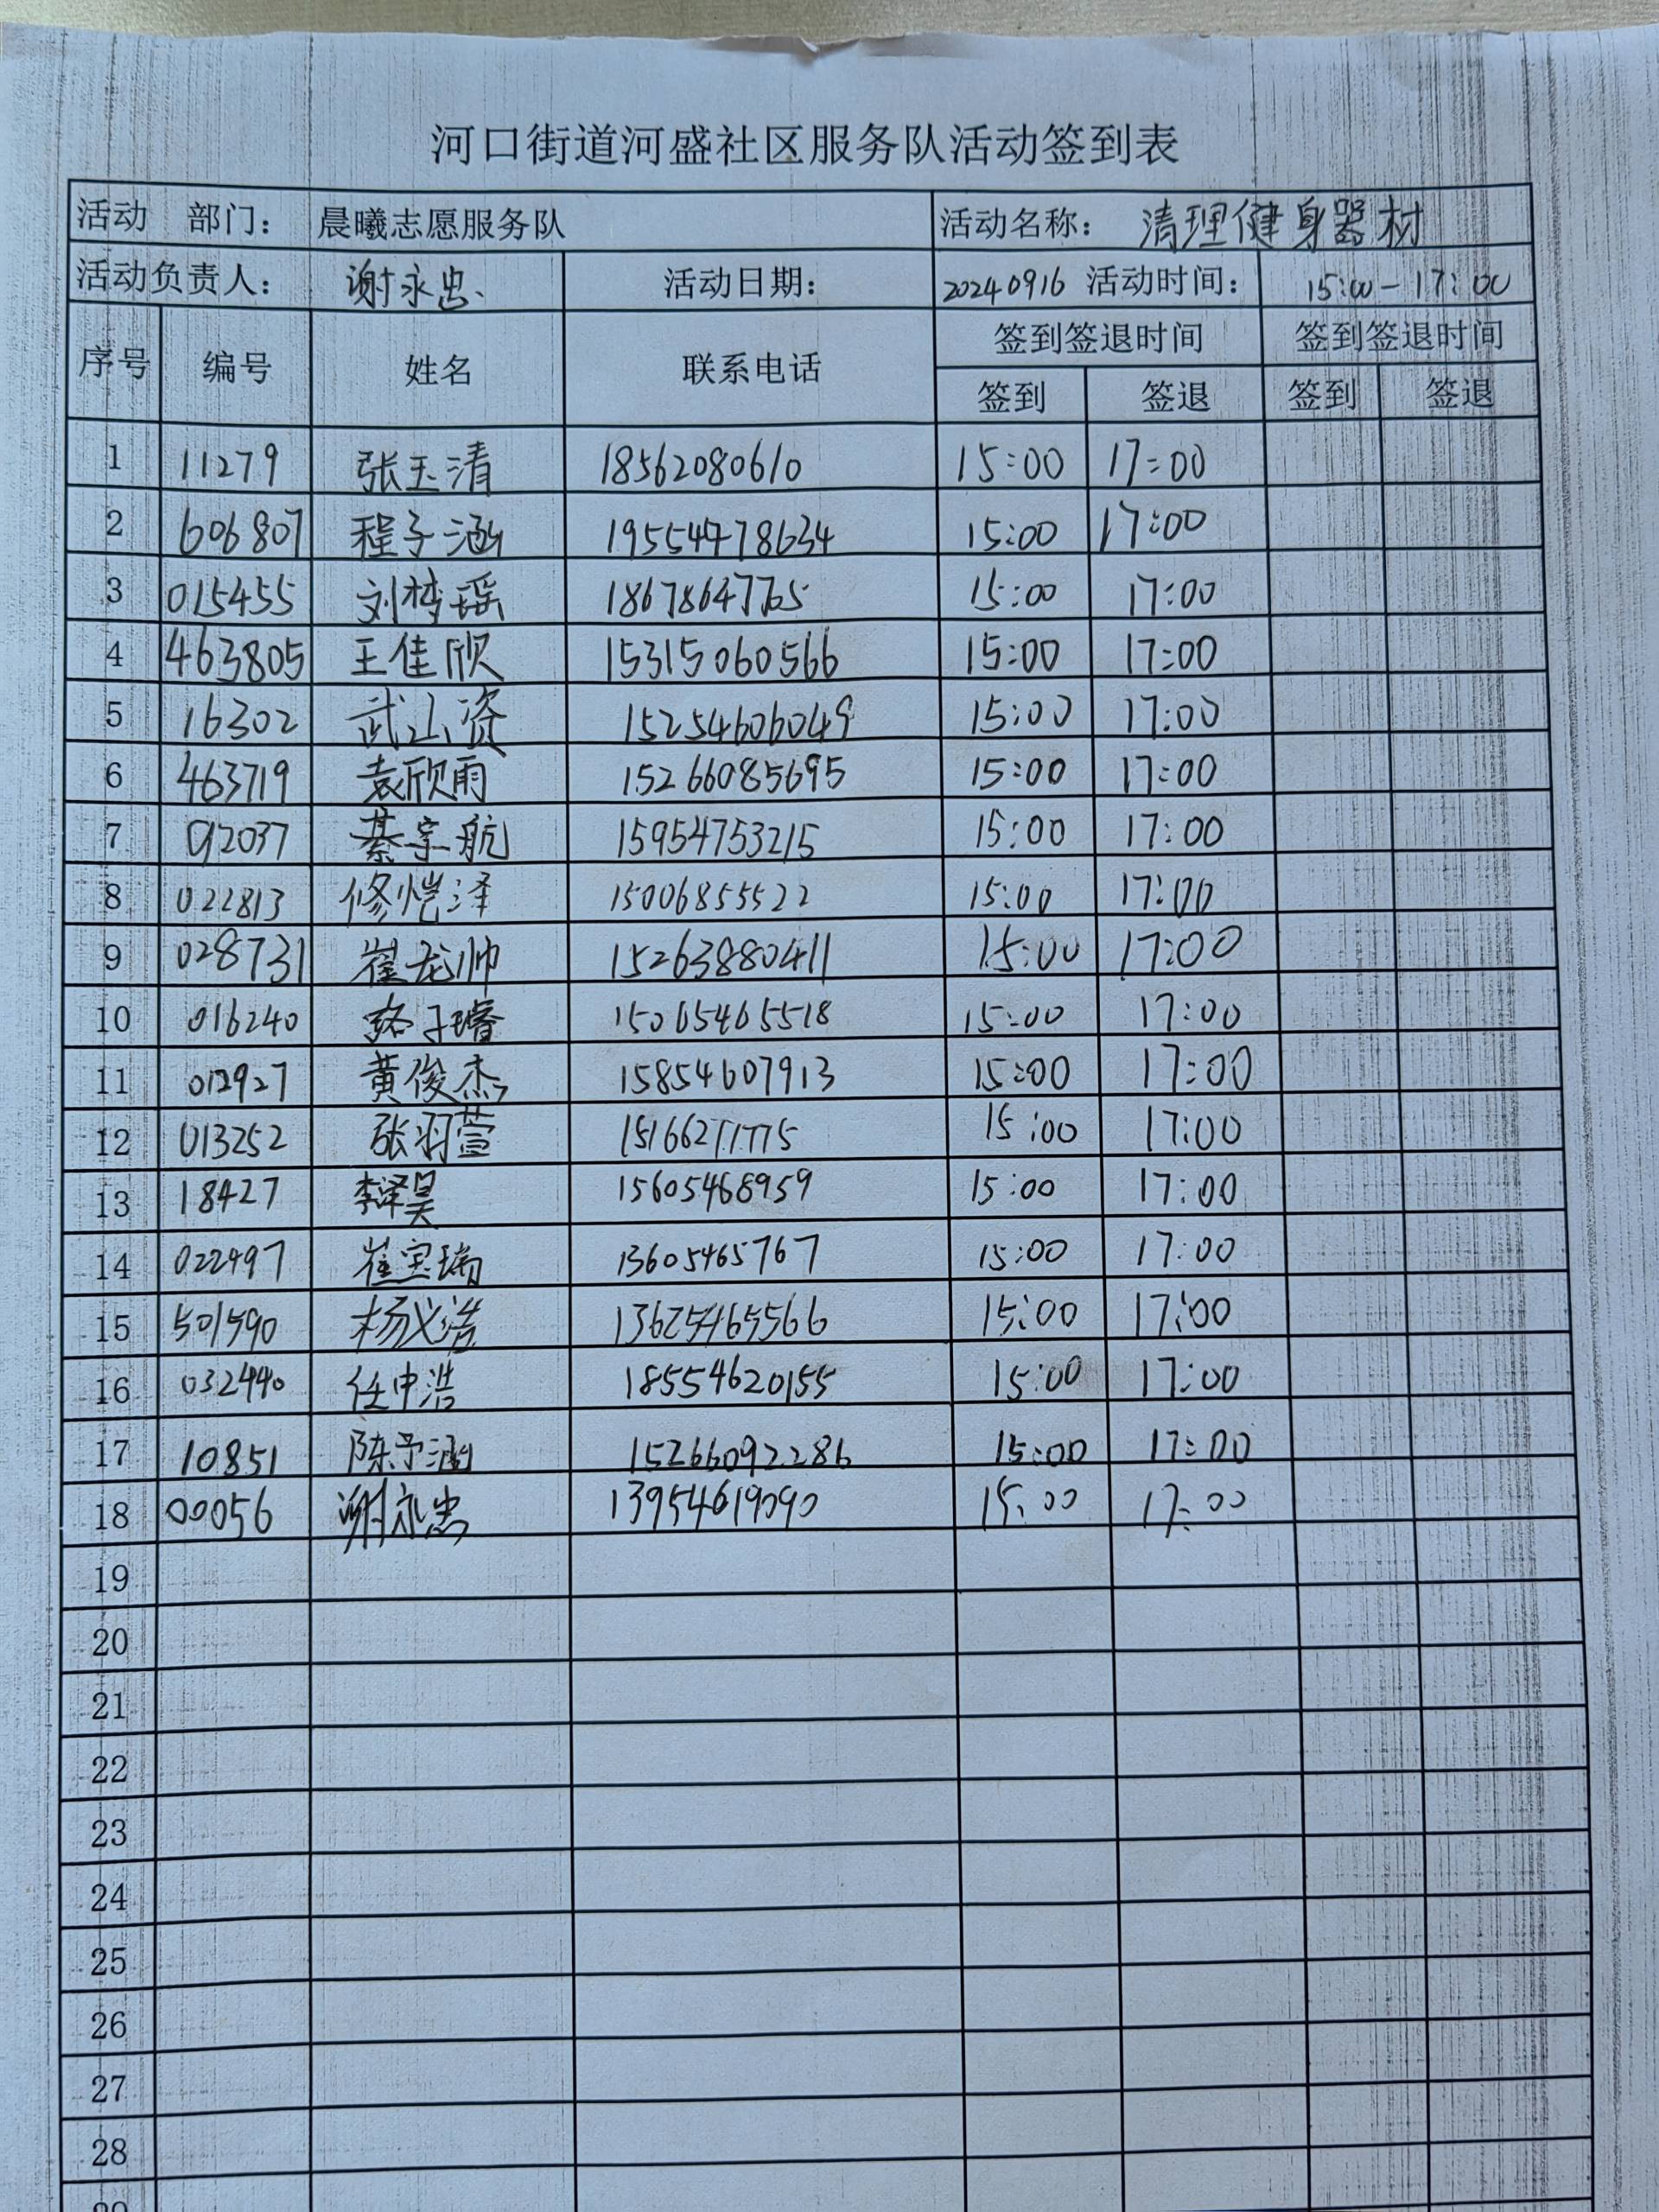 河口街道河盛社区服务队活动签到表
活动 部门： 晨曦志愿服务队 活动名称： 清理健身器材
活动负责人： 谢永忠 活动日期： 20240916 活动时间： 15:00-17:00
序号 编号 姓名 联系电话 签到签退时间 签到签退时间
签到 签退 签到 签退
1 11279 张玉清 18562080610 15:00 17:00
2 606807 程子涵 19554778634 15:00 17:00
3 015455 刘梦瑶 18678647705 15:00 17:00
4 463805 王佳欣 15315060566 15:00 17:00
5 16302 武山资 15254606049 15:00 17:00
6 463719 袁欣雨 15266085695 15:00 17:00
7 012037 綦宇航 15954753215 15:00 17:00
8 022813 修恺泽 15006855522 15:00 17:00
9 028731 崔龙帅 15263880411 15:00 17:00
10 016240 子睿 15065465518 15:00 17:00
11 012927 黄俊杰 15854607913 15:00 17:00
12 013252 张羽萱 15:00 17:00
13 18427 李泽昊 15605468959 15:00 17:00
14 022497 崔宝瑞 13605465767 15:00 17:00
15 501590 杨义浩 13625465566 15:00 17:00
16 032440 任中浩 18554620155 15:00 17:00
17 10851 陈予涵 15266092286 15:00 17:00
18 00056 谢永忠 13954619090 15:00 17:00
19
20
21
22
23
24
25
26
27
28